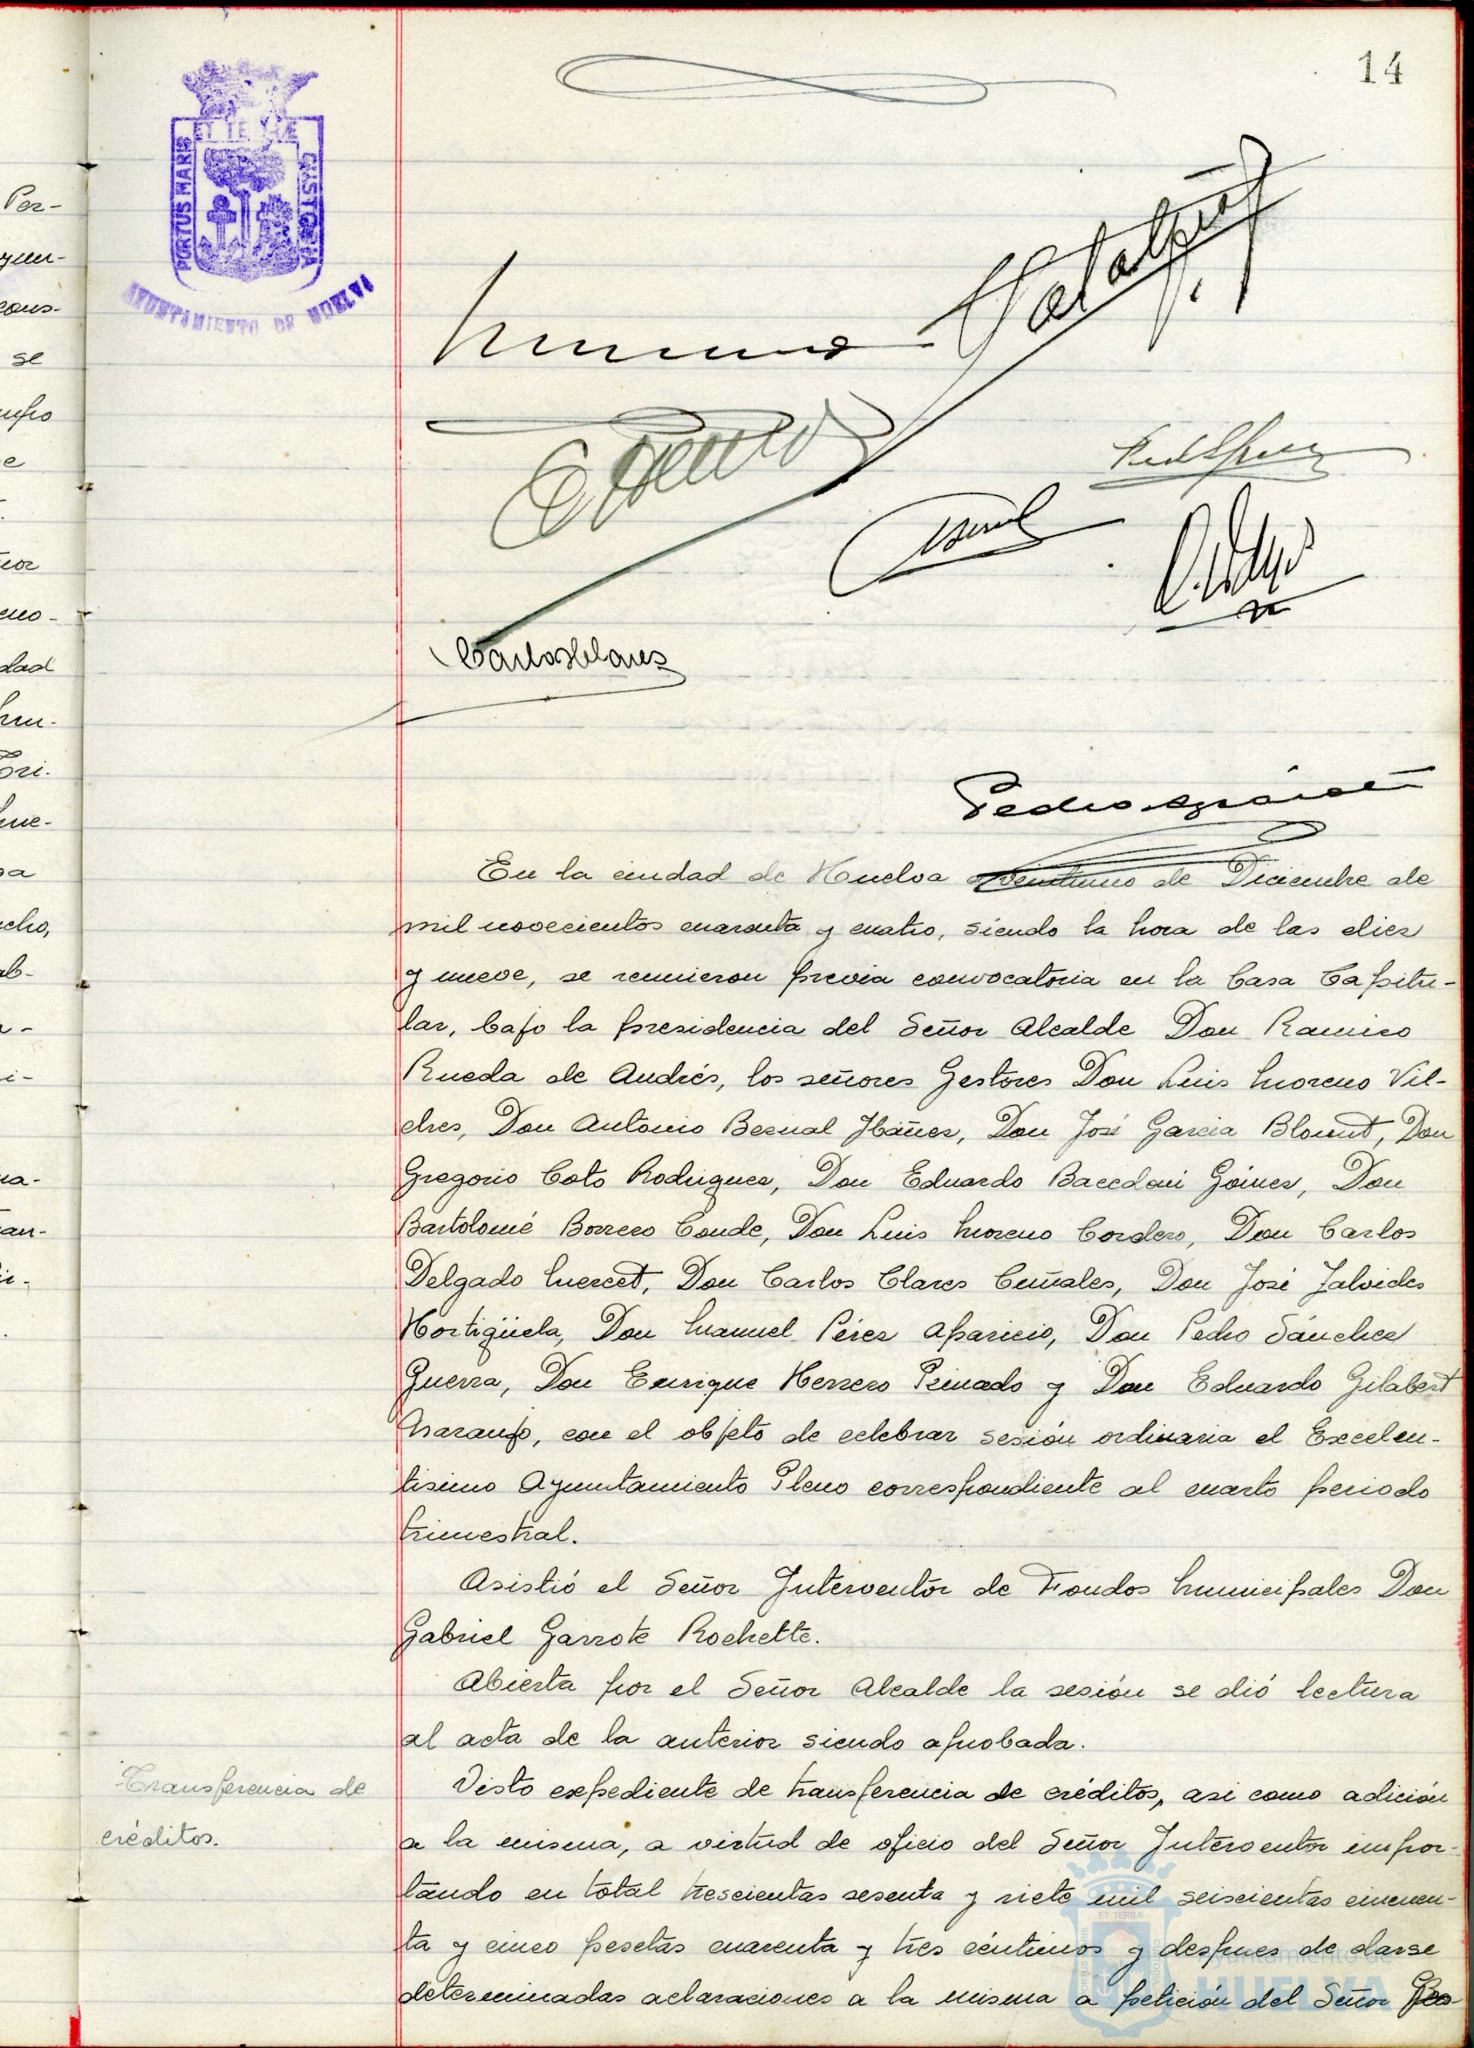 14
ET TERRÆ
PORTUS MARIS
CUSTODIA
AYUNTAMIENTO DE HUELVA
Per-
ayun-
cons-
se
e
eno-
dad
Tri-
cho,
ab-
a-
i-
na-
an-
Carlos Clares
Pedro
En la ciudad de Huelva a veintiuno de Diciembre de
mil novecientos cuarenta y cuatro, siendo la hora de las diez
y nueve, se reunieron previa convocatoria en la Casa Capitu-
lar, bajo la presidencia del Señor Alcalde Don Ramiro
Rueda de Andrés, los señores Gestores Don Luis Moreno Vil-
ches, Don Antonio Bernal Ibáñez, Don José Garcia Blount, Don
Gregorio Coto Rodriguez, Don Eduardo Baccdoni Góinez, Don
Bartolomé Borrero Conde, Don Luis Moreno Cordero, Don Carlos
Delgado Mercet, Don Carlos Clares Cuñales, Don José Jalvides
Hortigüela, Don Manuel Pérez Aparicio, Don Pedro Sánchez
Guerra, Don Enrique Herrero Peinado y Don Eduardo Gilabert
Naranjo, con el objeto de celebrar sesión ordinaria el Excelen-
tisimo Ayuntamiento Pleno correspondiente al cuarto periodo
trimestral.
Asistió el Señor Interventor de Fondos Municipales Don
Gabriel Garrote Rochette.
Abierta por el Señor Alcalde la sesión se dió lectura
al acta de la anterior siendo aprobada.
Transferencia de
créditos.
Visto expediente de transferencia de créditos, asi como adición
a la misma, a virtud de oficio del Señor Interventor impor-
tando en total trescientas sesenta y siete mil seiscientas cincuen-
ta y cinco pesetas cuarenta y tres céntimos y despues de darse
determinadas aclaraciones a la misma a petición del Señor
Ayuntamiento de
HUELVA